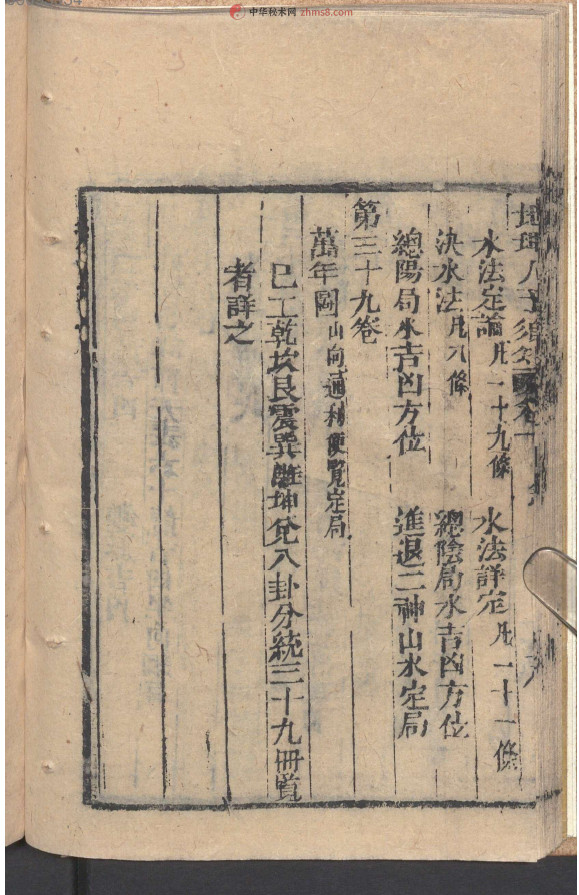 中华秘术网 zhms8.com
地理人子須知
水法定論 凡一十九條 水法詳定 凡一十一條
決水法 凡八條 總陰局水吉凶方位
總陽局水吉凶方位 進退二神山水定局
第三十九卷
萬年圖 山向通利便覽定局
已上乾坎艮震巽離坤兌八卦分統三十九冊覽
者詳之